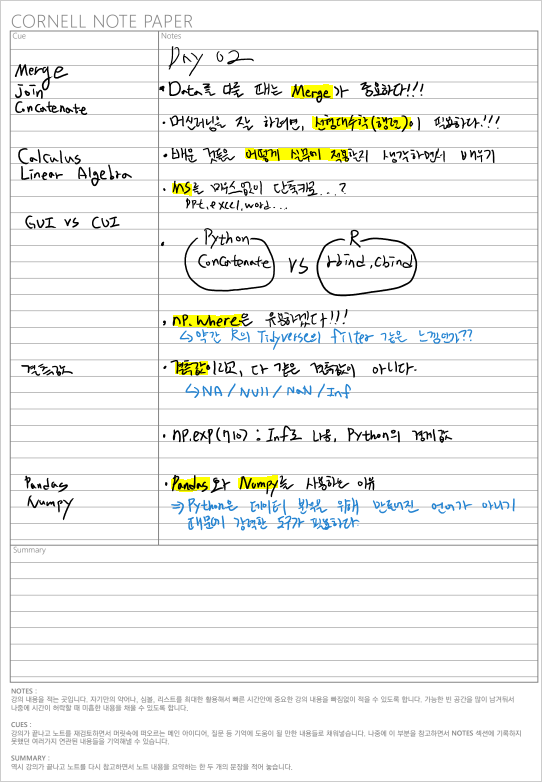 CORNELL NOTE PAPER
Cue
Notes
Day 02
Merge
Join
Concatenate
• Data를 다룰 때는 Merge가 중요하다!!!
• 머신러닝을 잘 하려면, 선형대수학(행렬)이 필요하다!!!
Calculus
Linear Algebra
• 배운 것들을 어떻게 실무에 적용할지 생각하면서 배우기
• MS를 마우스없이 단축키로...?
PPt, excel, word...
GUI vs CUI
• Python
Concatenate
vs
R
rbind, cbind
• np.where은 유용하겠다!!!
↳ 약간 R의 Tidyverse의 filter 같은 느낌인가??
결측값
• 결측값이라고, 다 같은 결측값이 아니다.
↳ NA / Null / NaN / Inf
• np.exp(710) : Inf로 나옴, Python의 경계값
Pandas
Numpy
• Pandas와 Numpy를 사용하는 이유
⇒ Python은 데이터 분석을 위해 만들어진 언어가 아니기
때문에 강력한 도구가 필요하다.
Summary
NOTES :
강의 내용을 적는 곳입니다. 자기만의 약어나, 심볼, 리스트를 최대한 활용해서 빠른 시간안에 중요한 강의 내용을 빠짐없이 적을 수 있도록 합니다. 가능한 빈 공간을 많이 남겨둬서
나중에 시간이 허락할 때 미흡한 내용을 채울 수 있도록 합니다.
CUES :
강의가 끝나고 노트를 재검토하면서 머릿속에 떠오르는 메인 아이디어, 질문 등 기억에 도움이 될 만한 내용들로 채워넣습니다. 나중에 이 부분을 참고하면서 NOTES 섹션에 기록하지
못했던 여러가지 연관된 내용들을 기억해낼 수 있습니다.
SUMMARY :
역시 강의가 끝나고 노트를 다시 참고하면서 노트 내용을 요약하는 한 두 개의 문장을 적어 놓습니다.